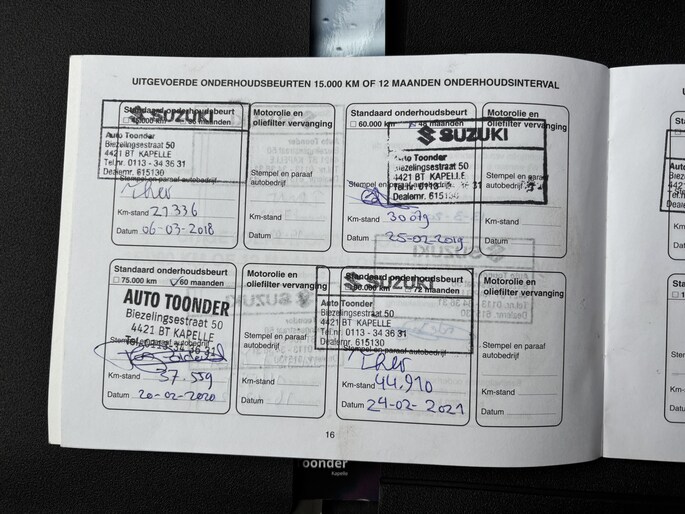 UITGEVOERDE ONDERHOUDSBEURTEN 15.000 KM OF 12 MAANDEN ONDERHOUDSINTERVAL
Standaard onderhoudsbeurt
maanden
SUZUKI
Auto Toonder
Biezelingsestraat 50
4421 BT KAPELLE
Tel.nr. 0113 - 34 36 31
Dealernr. 615130
Stempel en paraaf autobedrijf
Km-stand 21336
Datum 06-03-2018
Motorolie en
oliefilter vervanging
Stempel en paraaf
autobedrijf
Km-stand
Datum
Standaard onderhoudsbeurt
60.000 km 48 maanden
SUZUKI
Auto Toonder
Biezelingsestraat 50
4421 BT KAPELLE
Tel.nr. 0113
36 31
Dealernr. 615130
Stempel en paraaf autobedrijf
Km-stand 30079
Datum 25-02-2019
Motorolie en
oliefilter vervanging
Stempel en paraaf
autobedrijf
Km-stand
Datum
Standaard onderhoudsbeurt
75.000 km 60 maanden
AUTO TOONDER
Biezelingsestraat 50
4421 BT KAPELLE
Tel. 0113 - 34 36 31
Stempel en paraaf autobedrijf
Km-stand 37.559
Datum 20-02-2020
Motorolie en
oliefilter vervanging
Stempel en paraaf
autobedrijf
Km-stand
Datum
Standaard onderhoudsbeurt
90.000 km 72 maanden
SUZUKI
Auto Toonder
Biezelingsestraat 50
4421 BT KAPELLE
Tel.nr. 0113 - 34 36 31
Dealernr. 615130
Stempel en paraaf autobedrijf
Km-stand 44.910
Datum 24-02-2021
Motorolie en
oliefilter vervanging
Stempel en paraaf
autobedrijf
Km-stand
Datum
16
oonder
Kapelle